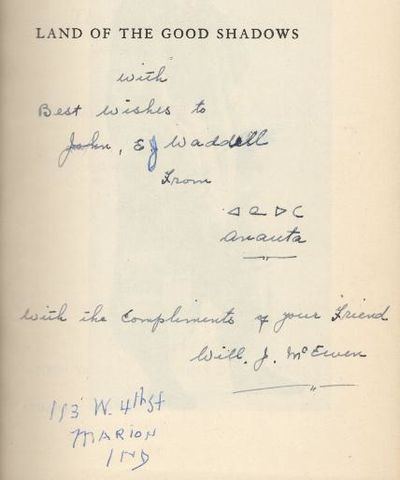 LAND OF THE GOOD SHADOWS
with
Best wishes to
John, E J Waddell
From
ᐊ ᓇ ᐅ ᑕ
Anauta
with the Compliments of your Friend
Will. J. McEwen
113 W. 4th St
MARION
IND